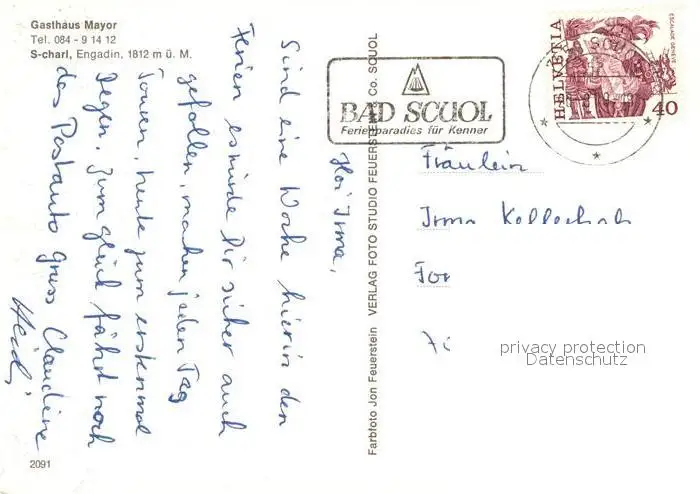 Gasthaus Mayor
Tel. 084 - 9 14 12
S-charl, Engadin, 1812 m ü. M.
Hoi Irma,
Sind eine Woche hier in den
Ferien es würde Dir sicher auch
gefallen, machen jeden Tag
Touren, heute zum erstenmal
Regen. Zum glück fährt noch
das Postauto Gruss Claudine
Heidi
2091
Farbfoto Jon Feuerstein VERLAG FOTO STUDIO FEUERSTEIN Co. SCUOL
BAD SCUOL
Ferienparadies für Kenner
HELVETIA
ESCALADE GENÈVE
40
Fräulein
Irma
privacy protection
Datenschutz